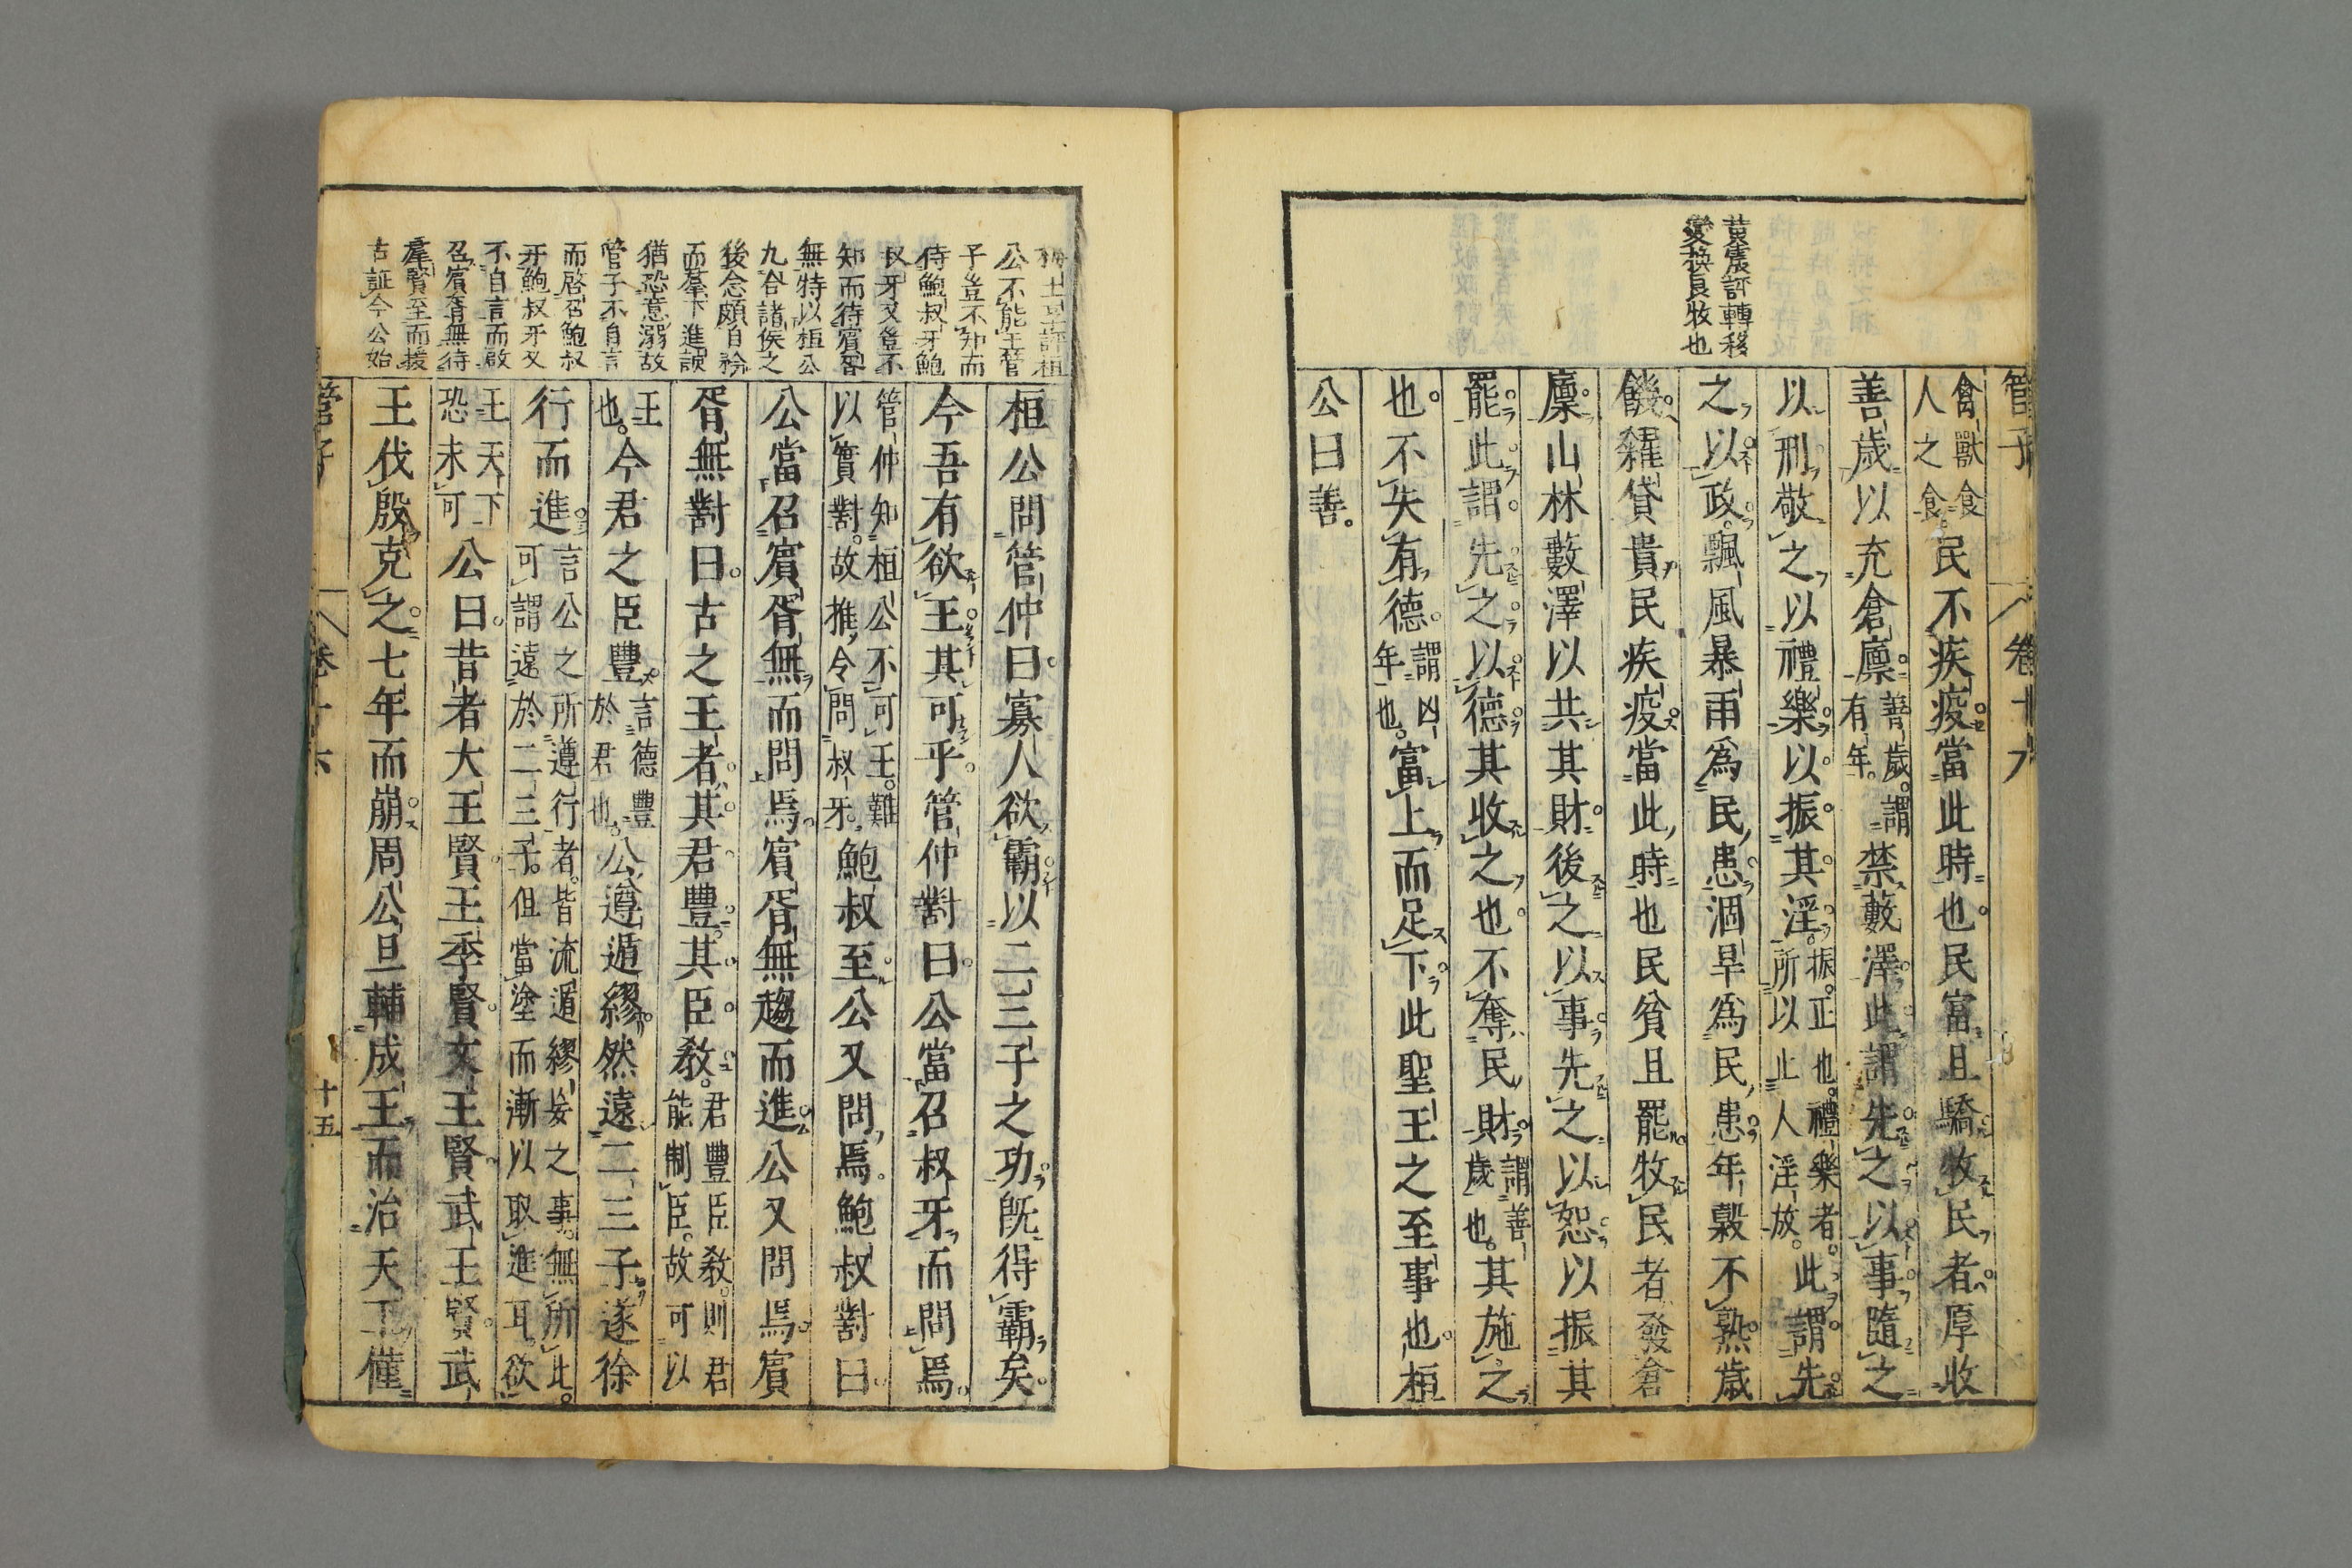 管子 卷十六
黄震評轉移
變換良牧也
禽獸食
人之食。民不疾疫。當此時也。民富且驕牧民者。厚收
善歲以充倉廩。善歲。謂
有年。禁藪澤。此謂先之以事。隨之
以刑敬之以禮樂。以振其淫。振。正也。禮樂者。
所以止人淫放。此謂先
之以政。飄風暴雨爲民患。涸旱爲民患。年穀不熟。歲
饑。糴貸貴民疾疫當此時也民貧且罷牧民者發倉
廩。山林藪澤以共其財。後之以事。先之以恕。以振其
罷。此謂先之以德。其收之也。不奪民財。謂善
歲也。其施之
也。不失有德。謂凶
年也。富上而足下。此聖王之至事也。桓
公曰善。
評桓
公不能王管
子豈不知而
待鮑叔牙鮑
叔牙又豈不
知而待賓胥
無特以桓公
九合諸侯之
後念頗自矜
而羣下進諛
猶恐意溺故
管子不自言
而啓召鮑叔
牙鮑叔牙又
不自言而啟
召賓胥無待
羣賢至而援
古証今公始
桓公問管仲曰。寡人欲霸。以二三子之功。既得霸矣。
今吾有欲王。其可乎。管仲對曰。公當召叔牙而問焉。
管仲知桓公不可王。難
以實對。故推令問叔牙。鮑叔至。公又問焉。鮑叔對曰。
公當召賓胥無而問焉。賓胥無趨而進。公又問焉。賓
胥無對曰。古之王者。其君豐。其臣教。君豐臣教。則君
能制臣。故可以
王
也。今君之臣豐。言德豐
於君也。公遵遁繆然遠。二三子遂徐
行而進。言公之所遵行者。皆流遁繆妄之事。無所此。
可謂遠於二三子。但當塗而漸以取進耳。欲
王天下
恐未可公曰。昔者大王賢。王季賢。文王賢。武王賢。武
王伐殷克之。七年而崩。周公旦輔成王而治天下僅
管子 卷十六 十五